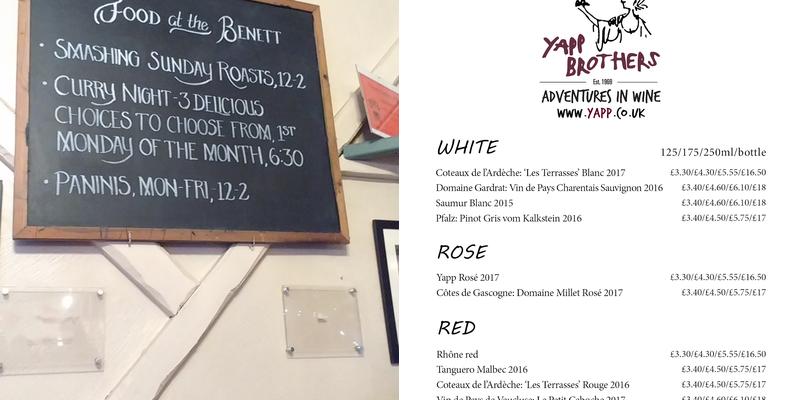 FOOD at the BENETT
• SMASHING SUNDAY ROASTS, 12-2
• CURRY NIGHT - 3 DELICIOUS
CHOICES TO CHOOSE FROM, 1ST
MONDAY OF THE MONTH, 6:30
• PANINIS, MON-FRI, 12-2
YAPP
BROTHERS
Est. 1969
ADVENTURES IN WINE
WWW.YAPP.CO.UK
WHITE 125/175/250ml/bottle
Coteaux de l'Ardèche: 'Les Terrasses' Blanc 2017 £3.30/£4.30/£5.55/£16.50
Domaine Gardrat: Vin de Pays Charentais Sauvignon 2016 £3.40/£4.60/£6.10/£18
Saumur Blanc 2015 £3.40/£4.60/£6.10/£18
Pfalz: Pinot Gris vom Kalkstein 2016 £3.40/£4.50/£5.75/£17
ROSE
Yapp Rosé 2017 £3.30/£4.30/£5.55/£16.50
Côtes de Gascogne: Domaine Millet Rosé 2017 £3.40/£4.50/£5.75/£17
RED
Rhône red £3.30/£4.30/£5.55/£16.50
Tanguero Malbec 2016 £3.40/£4.50/£5.75/£17
Coteaux de l'Ardèche: 'Les Terrasses' Rouge 2016 £3.40/£4.50/£5.75/£17
Vin de Pays de Vaucluse: Le Petit Caboche 2017 £3.40/£4.60/£6.10/£18